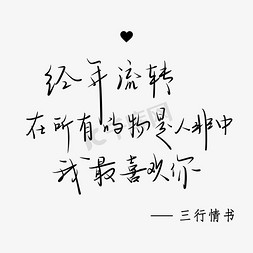 经年流转
在所有的物是人非中
我最喜欢你
—— 三行情书